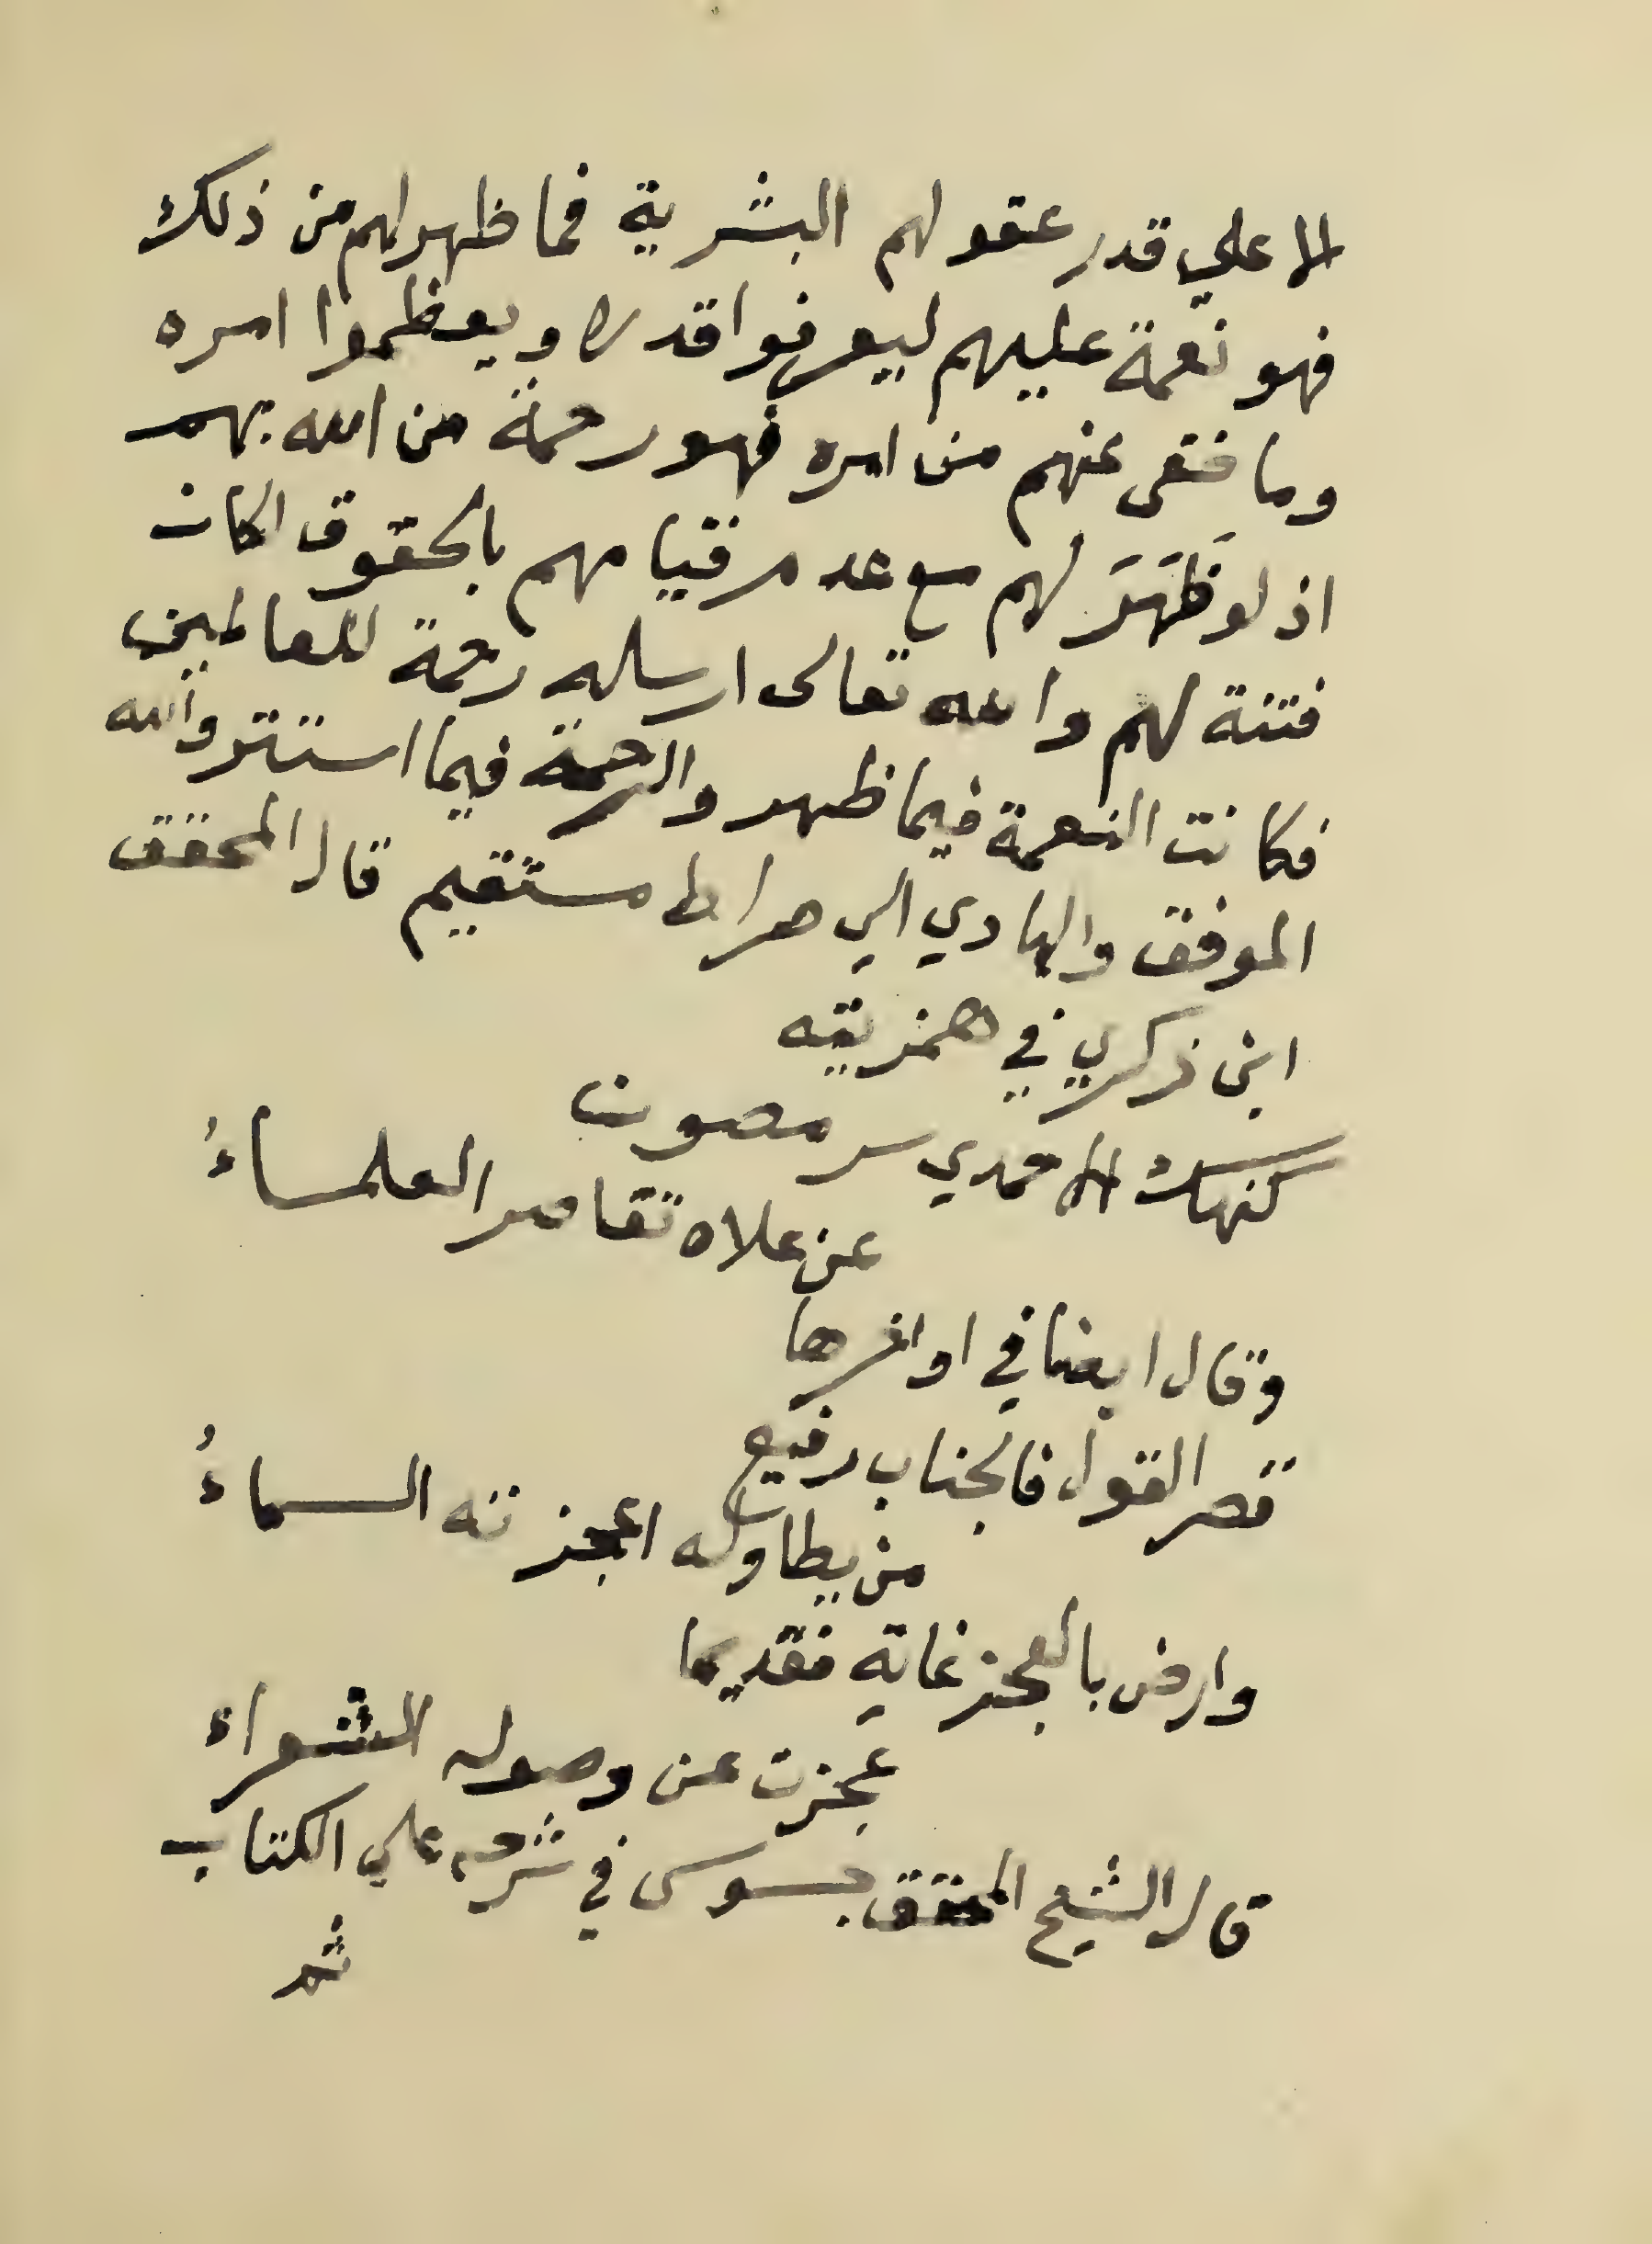 الا علي قدر عقولهم البشرية فما ظهر لهم من ذلك
فهو نعمة عليهم ليعرفوا قدره ويعظموا امره
وما خفى عنهم من امره فهو رحمة من الله بهم
اذ لو ظَهَرَ لهم مع عدم قيامهم بالحقوق لكان
فتنة لهم والله تعالى ارسله رحمة للعالمين
فكانت النعمة فيما ظهر والرحمة فيما استتر والله
الموفق والهادي الي صراط مستقيم قال المحقق
ابن زكري في همزيته
كنهك الاحمدي سر مصون
عن علاه تقاصر العلماءُ
وقال ايضا في اواخرها
قصر القول فالجناب رفيع
من يطاوله اعجزته السماءُ
وارض بالعجز غاية فقديما
عجزت عن وصوله الشعراء
قال الشيخ المحقق جسوس في شرحه علي الكتاب
ثم